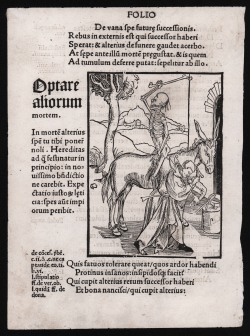 FOLIO
De vana spe future successionis.
Rebus in externis est qui successor haberi
Sperat: & alterius de funere gaudet acerbo.
At sepe ante illũ mortẽ pregustat. & is quem
Ad tumulum deferre putat: sepelitur ab illo.
Optare
aliorum
mortem.
In mortẽ alterius
spẽ tu tibi poner
noli. Hereditas
ad q̃ festinatur in
principio: in no
uissimo bñdictio
ne carebit. Expe
ctatio iusto& leti
cia: spes aũt impi
orum peribit.
Quis fatuos tolerare queat/quos ardor habendi
Protinus insanos: insipidosq; facit?
Qui cupit alterius rerum successor haberi
Et bona nancisci/qui cupit alterius: